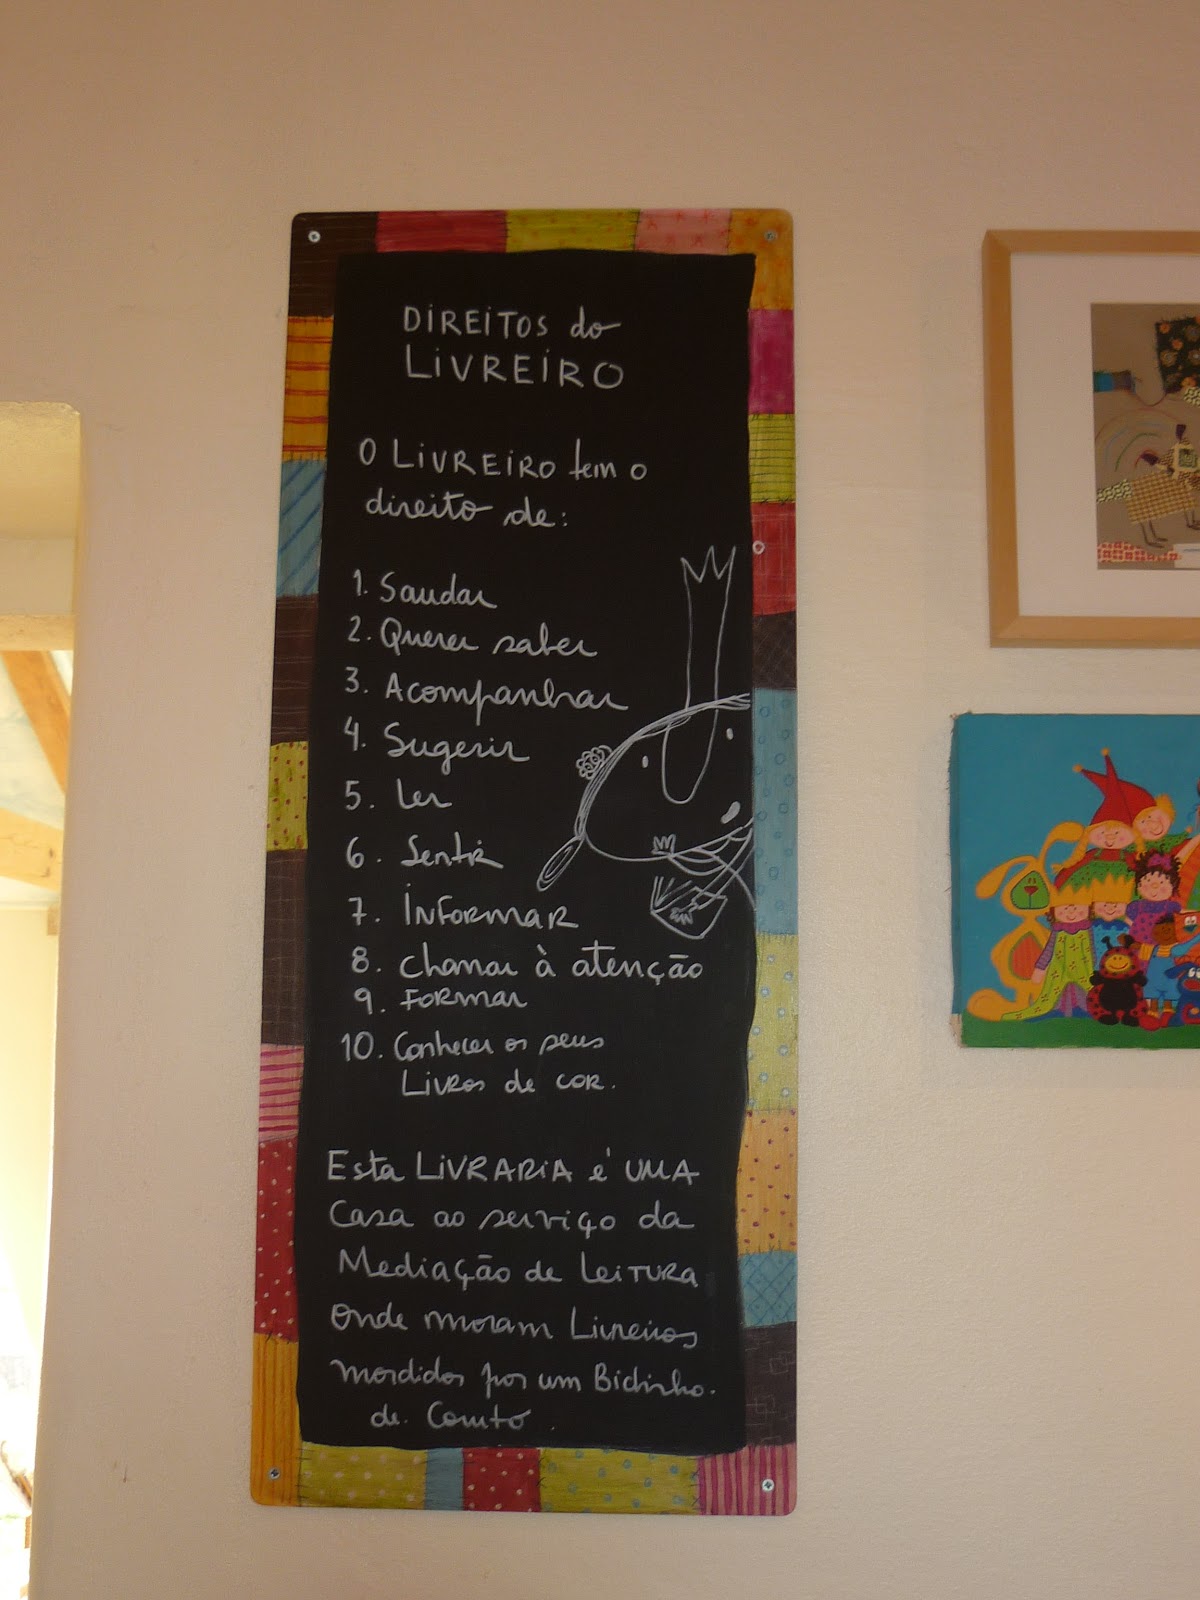 DIREITOS do
LIVREIRO
O LIVREIRO tem o
direito de:
1. Saudar
2. Querer saber
3. Acompanhar
4. Sugerir
5. Ler
6. Sentir
7. INFORMAR
8. Chamar à atenção
9. FORMAR
10. Conhecer os seus
Livros de cor.
Esta LIVRARIA é UMA
Casa ao serviço da
Mediação de LEITURA
Onde moram Livreiros
mordidos por um Bichinho.
de. Conto.